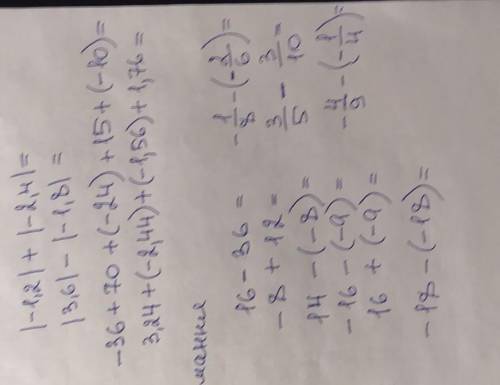 |-1,2| + |-2,4| =
|3,6| - |-1,8| =
-36 + 70 + (-24) + 15 + (-10) =
3,24 + (-2,44) + (-1,56) + 1,76 =
мання
16 - 36 =
-8 + 12 =
14 - (-8) =
-16 - (-9) =
16 + (-9) =
-18 - (-18) =
-1/8 - (-1/6) =
3/5 - 3/10 =
-4/9 - (-1/4) =